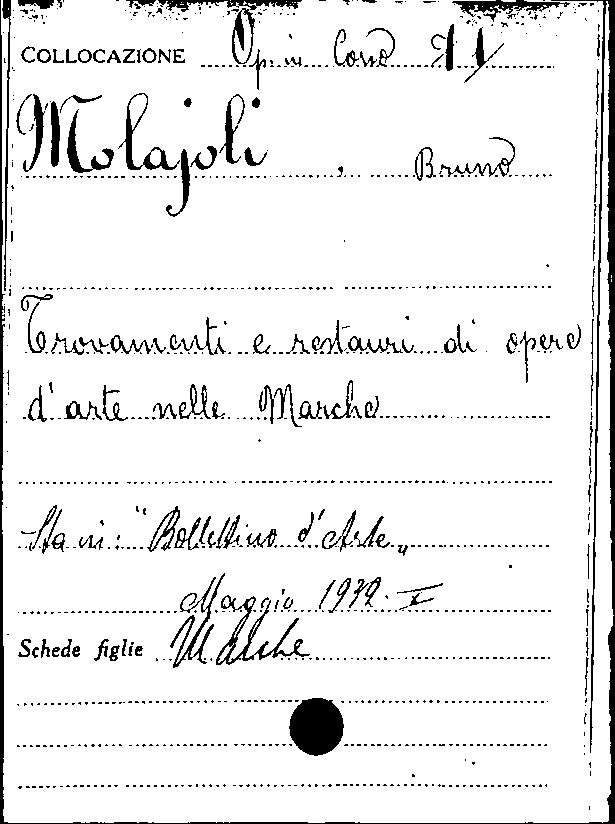 COLLOCAZIONE Op. in Corso 71/
Molajoli, Bruno
Trovamenti e restauri di opere
d'arte nelle Marche
Sta in: "Bollettino d'Arte„
Maggio 1932. X
Schede figlie Marche